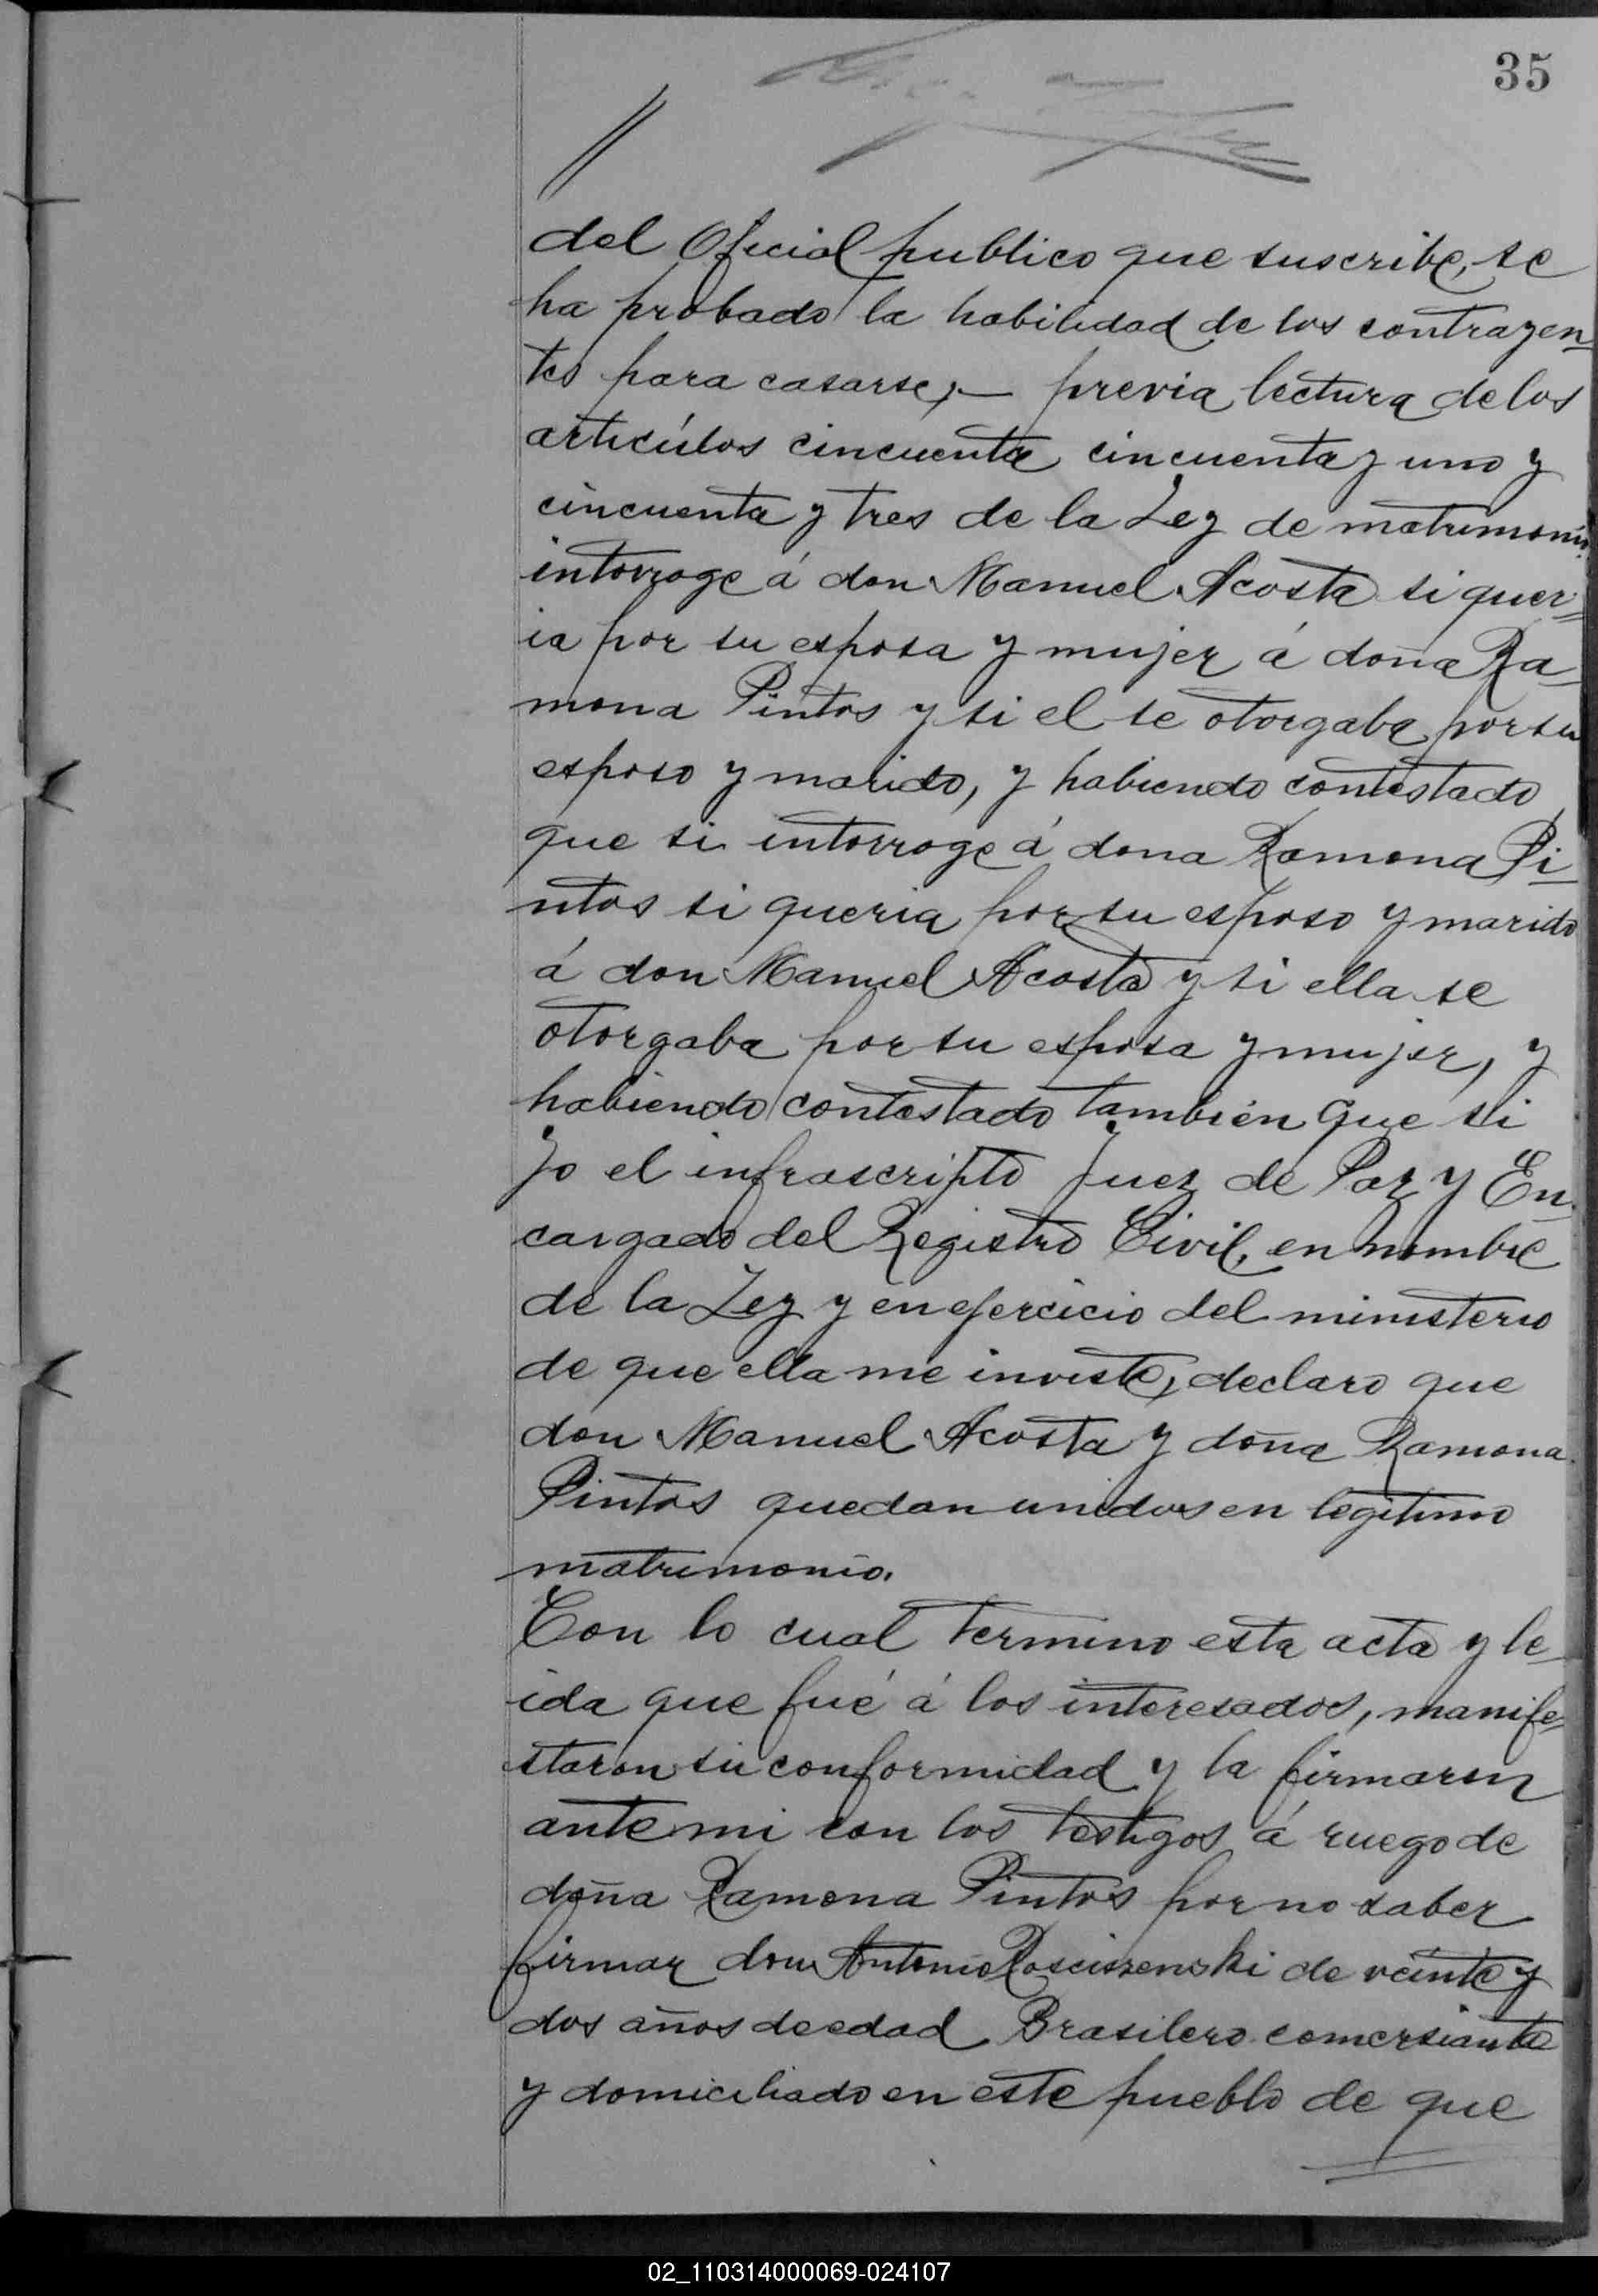 35
del Oficial publico que suscribe, se
ha probado la habilidad de los contrayen_
tes para casarse,— previa lectura de los
articúlos cincuenta cincuenta y uno y
cincuenta y tres de la Ley de matrimonio
interroge á don Manuel Acosta si quer=
ia por su esposa y mujer á doña Ra_
mona Pintos y si el se otorgaba por su
esposo y marido, y habiendo contestado
que si interroge á dona Ramona Pi_
ntos si queria por su esposo y marido
á don Manuel Acosta y si ella se
otorgaba por su esposa y mujer, y
habiendo contestado también que si
Yo el infrascripto Juez de Paz y En_
cargado del Registro Civil, en nombre
de la Ley y en ejercicio del ministerio
de que ella me inviste, declaro que
don Manuel Acosta y doña Ramona
Pintos quedan unidos en legitimo
matrimonio.
Con lo cual termino esta acta y le_
ida que fué á los interesados, manife=
staron su conformidad y la firmaron
ante mi con los testigos á ruego de
doña Ramona Pintos por no saber
firmar don Antonio Rosciszenski de veinte y
dos años de edad Brasilero comersiante
y domiciliado en este pueblo de que
02_110314000069-024107